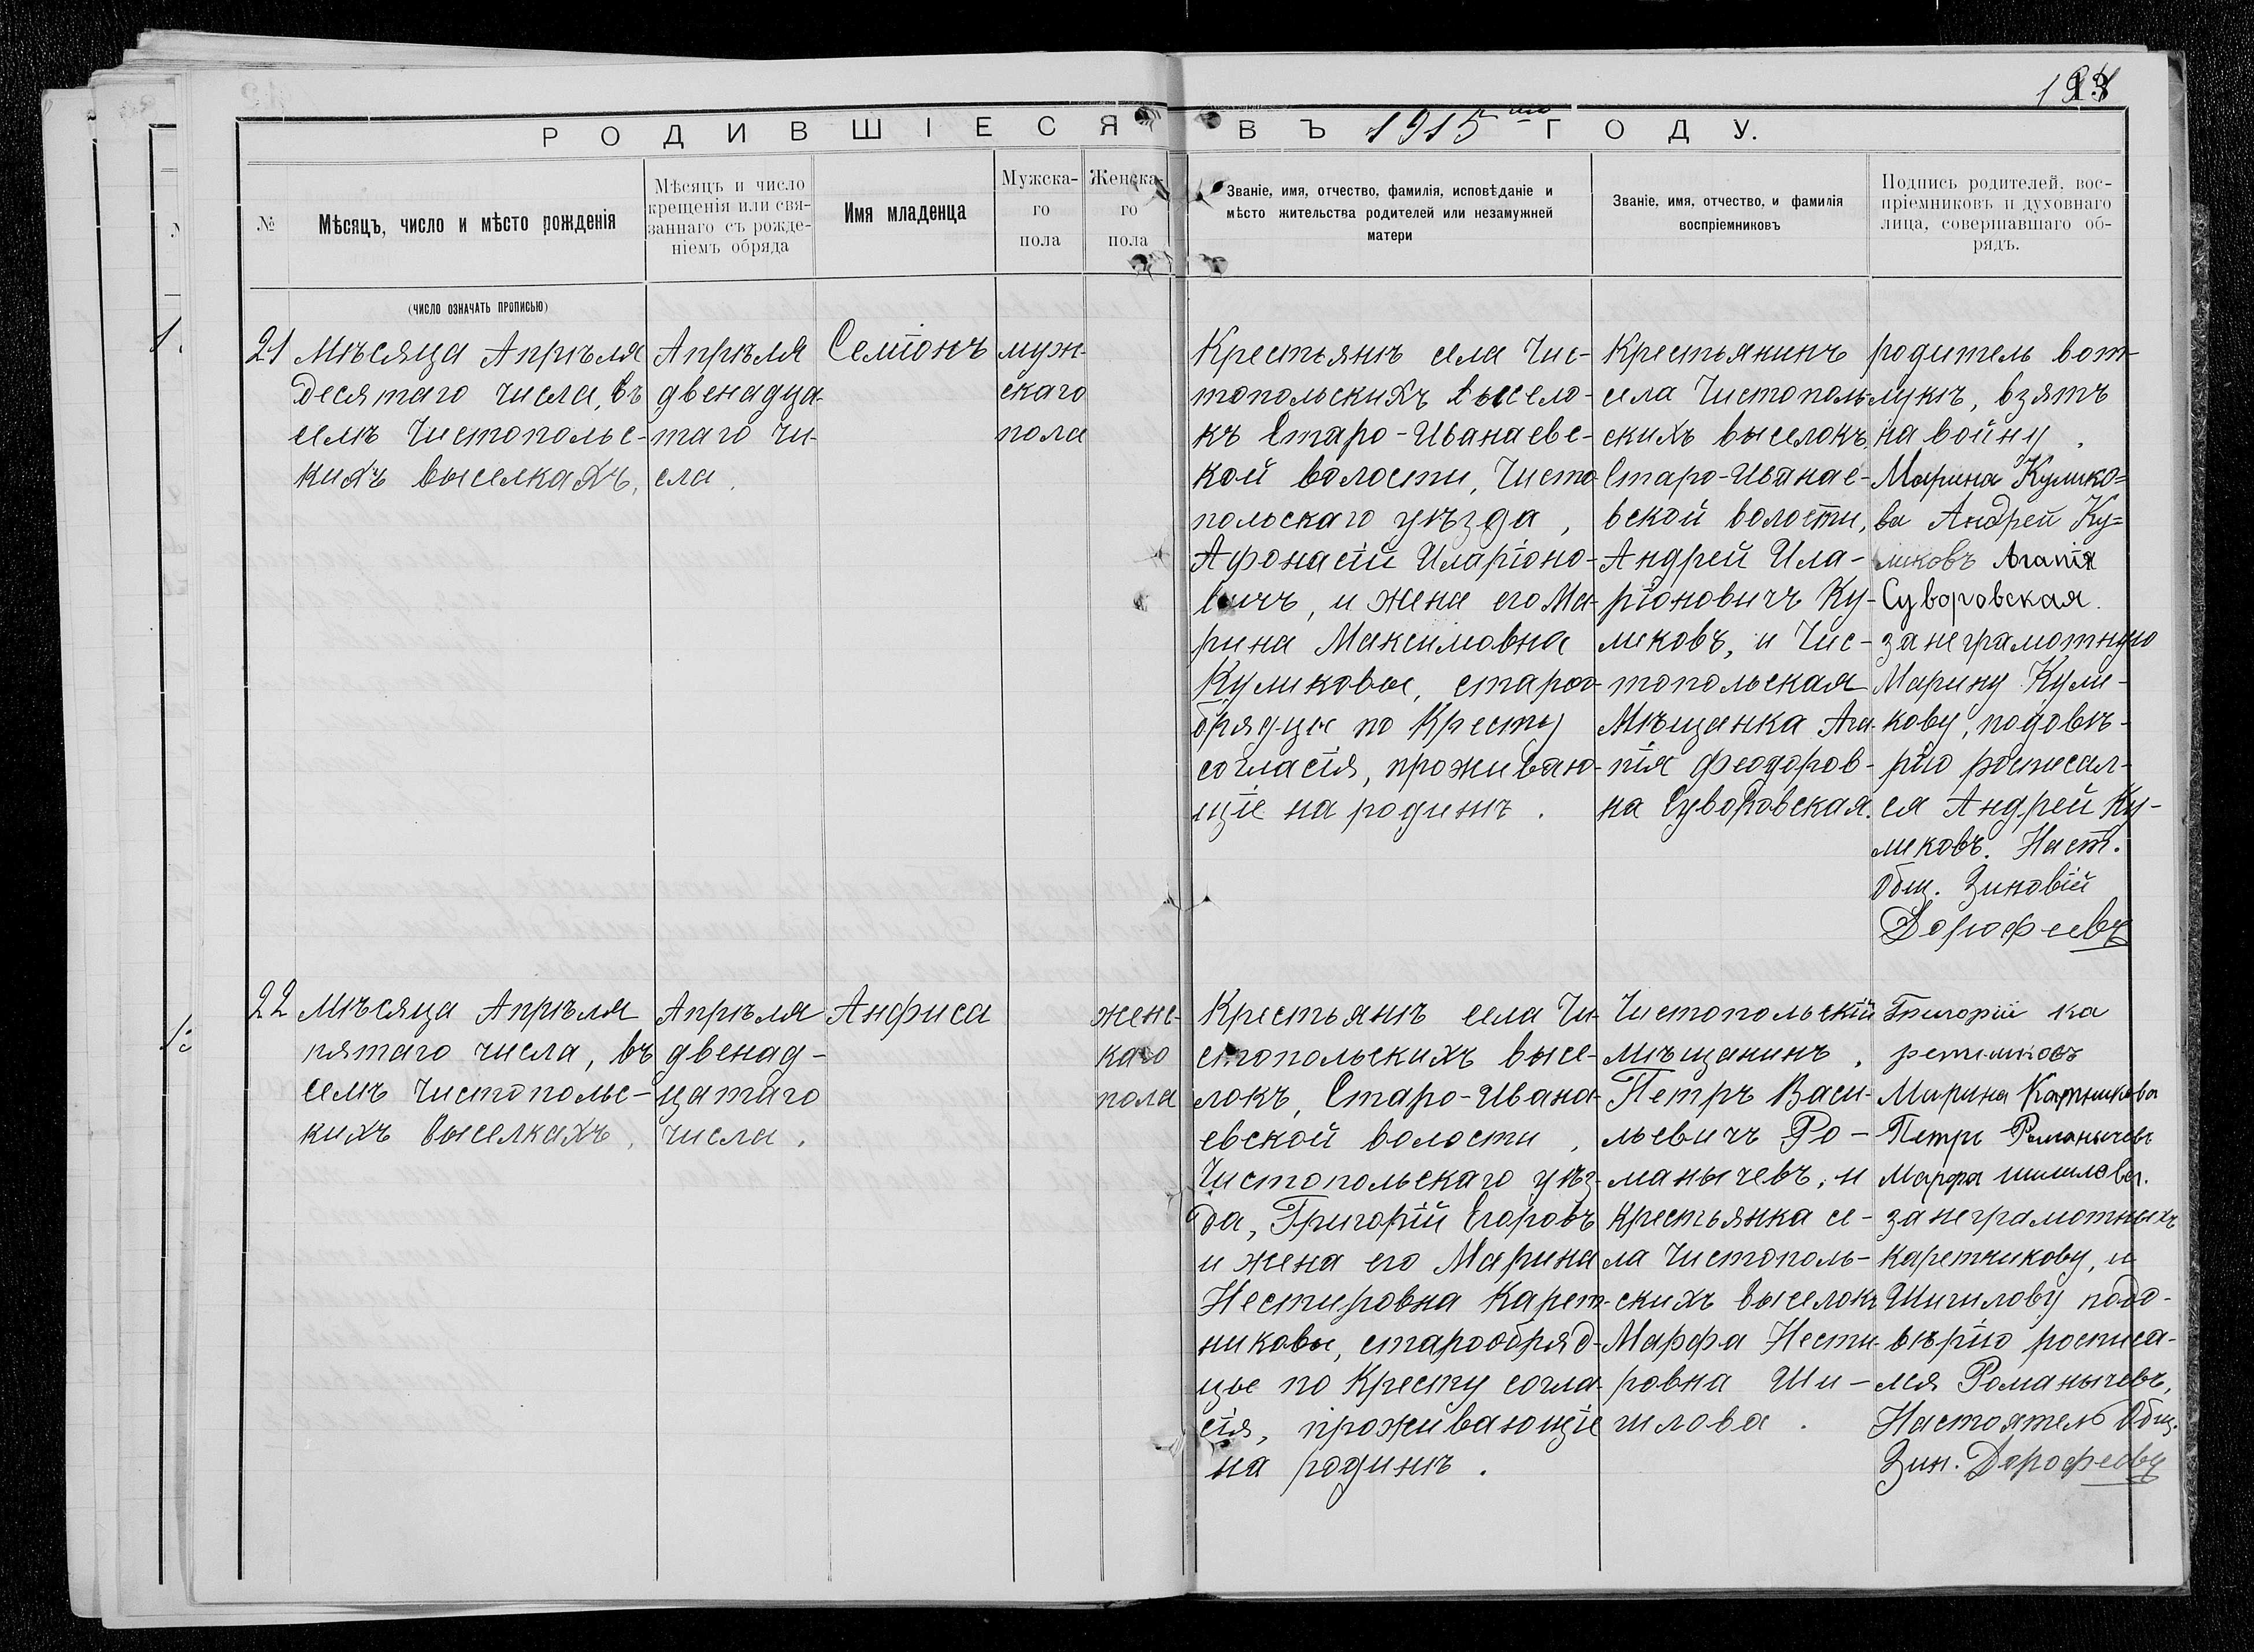 РОДИВШІЕСЯ ВЪ 1915 ГОДУ.
№
Мѣсяцъ, число и мѣсто рожденія
Мѣсяцъ и число
крещенія или свя-
заннаго съ рожде-
ніемъ обряда
Имя младенца
Мужска-
го
пола
Женска-
го
пола
Званіе, имя, отчество, фамилія, исповѣданіе и
мѣсто жительства родителей или незамужней
матери
Званіе, имя, отчество, и фамилія
воспріемниковъ
Подпись родителей, вос-
пріемниковъ и духовнаго
лица, совершавшаго об-
рядъ.
(число означать прописью)
21
Мѣсяца Апрѣля
десятаго числа, въ
селѣ Чистопольс-
кихъ выселкахъ.
Апрѣля
двенадца-
таго чи-
сла.
Семіонъ
муж-
скаго
пола
Крестьянѣ села Чис-
топольскихъ высело-
къ Старо-Иванаевс-
кой волости, Чисто-
польскаго уѣзда,
Афонасій Иларіоно-
вичъ, и жена его Ма-
рина Максимовна
Куликовы, старо-
обрядцы по Кресту
согласія, проживаю-
щіе на родинѣ.
Крестьянинъ
села Чистополь-
скихъ выселокъ
Старо-Иванае-
вской волости,
Андрей Ила-
ріоновичъ Ку-
ликовъ, и Чис-
топольская
Мѣщанка Ага-
пія Феодоров-
на Суворовская.
родитель вот-
лукѣ, взятъ
на войну.
Марина Кулико=
ва Андрей Ку=
ликовъ Агапія
Суворовская.
за неграмотную
Марину Кули-
кову, по довѣ-
рію росписал-
ся Андрей Ку-
ликовъ. Наст.
Общ. Зиновій
Дорофеевъ
22
Мѣсяца Апрѣля
пятаго числа, въ
селѣ Чистопольс-
кихъ выселкахъ.
Апрѣля
двенад-
цатаго
числа.
Анфиса
женс-
каго
пола
Крестьянѣ села Чи-
стопольскихъ высе-
локъ, Старо-Ивана-
евской волости,
Чистопольскаго уѣз-
да, Григорій Егоровъ
и жена его Марина
Нестировна Карет-
никовы, старообряд-
цы по Кресту согла-
сія, проживающіе
на родинѣ.
Чистопольскій
Мѣщанинъ,
Петръ Васи-
льевичъ Ро-
манычевъ, и
крестьянка се-
ла Чистополь-
скихъ выселокъ
Марфа Нести-
ровна Ши-
шлова.
Григорій ка
ретниковъ
Марина
Петръ Романычевъ
Марфа
за неграмотныхъ
Каретникову, и
Шишлову по до-
вѣрію росписа-
лся Романычевъ,
Настоятель Общ.
Зин. Дорофеевъ